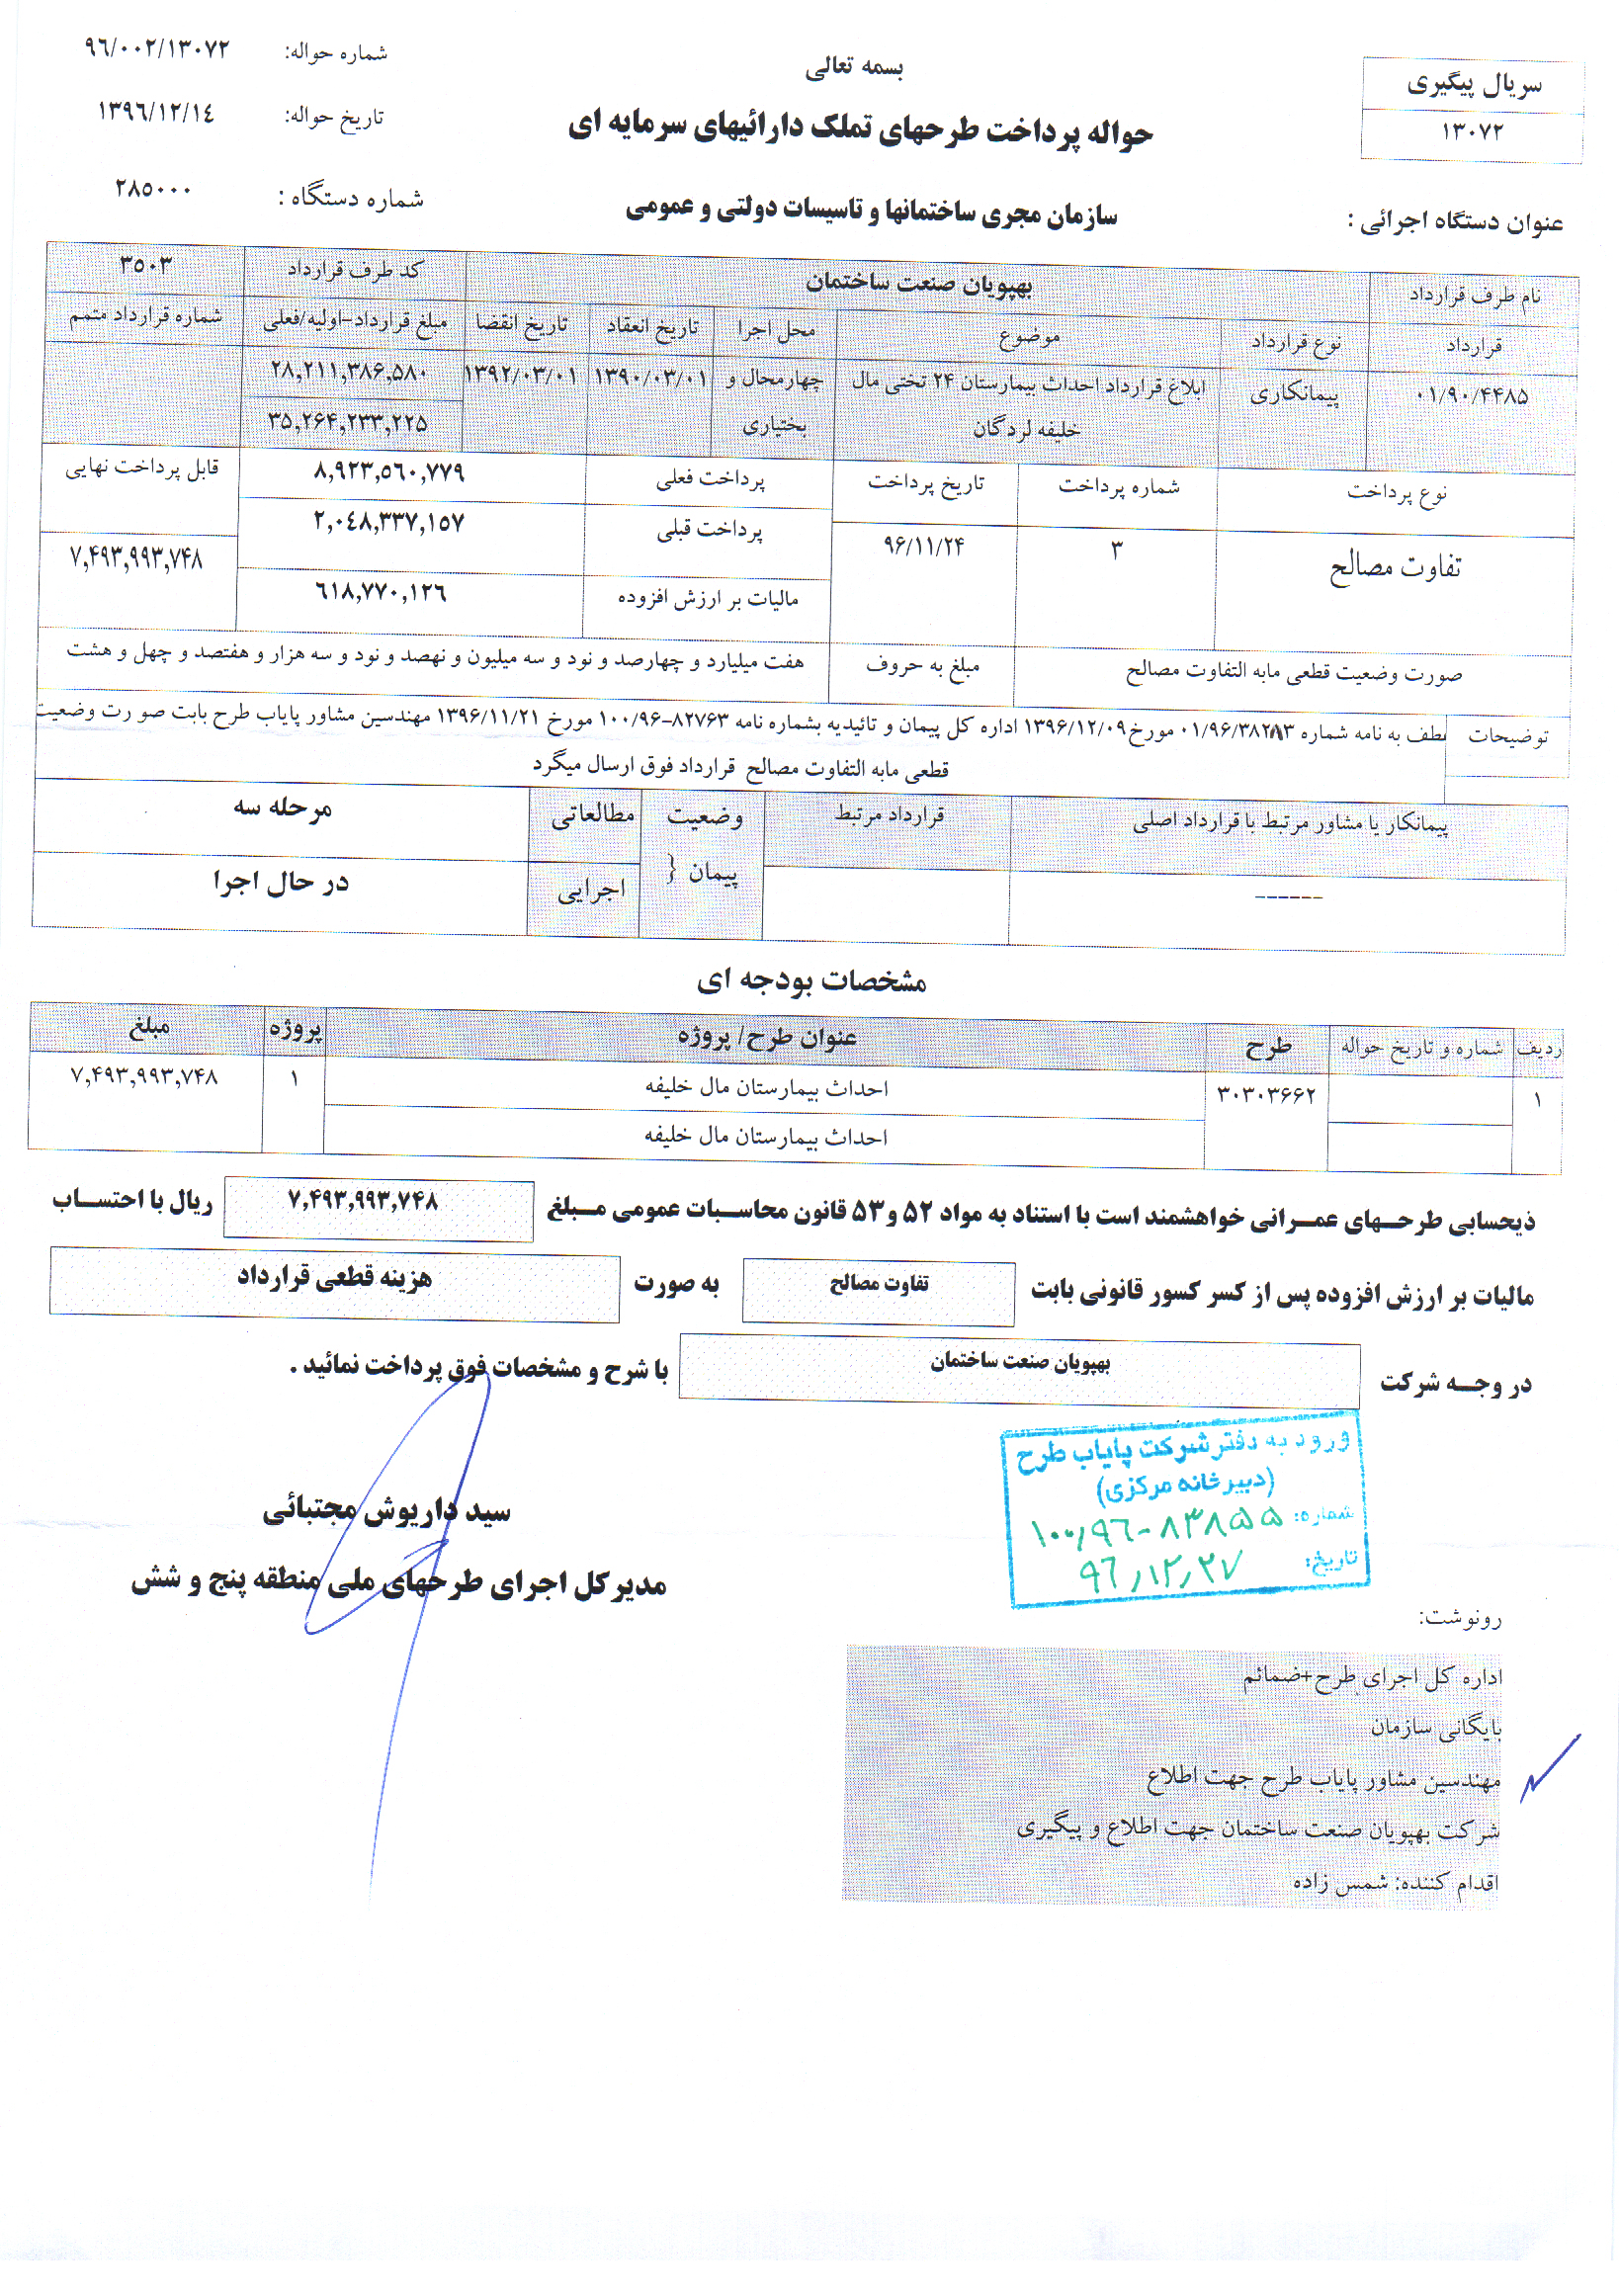 بسمه تعالی
سریال پیگیری
۱۳۰۷۲
شماره حواله: ۹۶/۰۰۲/۱۳۰۷۲
حواله پرداخت طرحهای تملک دارائیهای سرمایه ای
تاریخ حواله: ۱۳۹۶/۱۲/۱۴
عنوان دستگاه اجرائی : سازمان مجری ساختمانها و تاسیسات دولتی و عمومی
شماره دستگاه : ۲۸۵۰۰۰
نام طرف قرارداد بهپویان صنعت ساختمان کد طرف قرارداد ۳۵۰۳
قرارداد نوع قرارداد موضوع محل اجرا تاریخ انعقاد تاریخ انقضا مبلغ قرارداد-اولیه/فعلی شماره قرارداد متمم
۰۱/۹۰/۴۴۸۵ پیمانکاری ابلاغ قرارداد احداث بیمارستان ۲۴ تختی مال چهارمحال و ۱۳۹۰/۰۳/۰۱ ۱۳۹۲/۰۳/۰۱ ۲۸,۲۱۱,۳۸۶,۵۸۰
خلیفه لردگان بختیاری ۳۵,۲۶۴,۲۳۳,۲۲۵
نوع پرداخت شماره پرداخت تاریخ پرداخت پرداخت فعلی ۸,۹۲۳,۵۶۰,۷۷۹ قابل پرداخت نهایی
تفاوت مصالح ۳ ۹۶/۱۱/۲۴ پرداخت قبلی ۲,۰۴۸,۳۳۷,۱۵۷ ۷,۴۹۳,۹۹۳,۷۴۸
مالیات بر ارزش افزوده ۶۱۸,۷۷۰,۱۲۶
صورت وضعیت قطعی مابه التفاوت مصالح مبلغ به حروف هفت میلیارد و چهارصد و نود و سه میلیون و نهصد و نود و سه هزار و هفتصد و چهل و هشت
توضیحات عطف به نامه شماره ۰۱/۹۶/۳۸۲۸۱۳ مورخ ۱۳۹۶/۱۲/۰۹ اداره کل پیمان و تائیدیه بشماره نامه ۸۲۷۶۳-۱۰۰/۹۶ مورخ ۱۳۹۶/۱۱/۲۱ مهندسین مشاور پایاب طرح بابت صو رت وضعیت
قطعی مابه التفاوت مصالح قرارداد فوق ارسال میگرد
پیمانکار یا مشاور مرتبط با قرارداد اصلی قرارداد مرتبط وضعیت مطالعاتی مرحله سه
------ پیمان { اجرایی در حال اجرا
مشخصات بودجه ای
ردیف شماره و تاریخ حواله طرح عنوان طرح/ پروژه پروژه مبلغ
۱ ۳۰۳۰۳۶۶۲ احداث بیمارستان مال خلیفه ۱ ۷,۴۹۳,۹۹۳,۷۴۸
احداث بیمارستان مال خلیفه
ذیحسابی طرحهای عمرانی خواهشمند است با استناد به مواد ۵۲ و ۵۳ قانون محاسبات عمومی مبلغ ۷,۴۹۳,۹۹۳,۷۴۸ ریال با احتساب
مالیات بر ارزش افزوده پس از کسر کسور قانونی بابت تفاوت مصالح به صورت هزینه قطعی قرارداد
در وجه شرکت بهپویان صنعت ساختمان با شرح و مشخصات فوق پرداخت نمائید .
ورود به دفتر شرکت پایاب طرح
(دبیرخانه مرکزی)
شماره: ۱۰۰٫۹۶-۸۳۸۵۵
تاریخ: ۹۶٫۱۲٫۲۷
سید داریوش مجتبائی
مدیرکل اجرای طرحهای ملی منطقه پنج و شش
رونوشت:
اداره کل اجرای طرح+ضمائم
بایگانی سازمان
مهندسین مشاور پایاب طرح جهت اطلاع
شرکت بهپویان صنعت ساختمان جهت اطلاع و پیگیری
اقدام کننده: شمس زاده